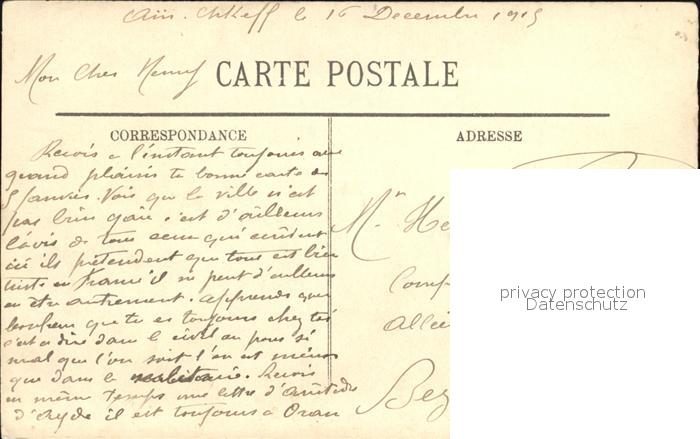 Aïn-Chkeff le 16 Decembre 1915
Mon Cher
CARTE POSTALE
CORRESPONDANCE
ADRESSE
Recois a l'instant toujours avec
grand plaisir ta bonne carte du
5 Vois que la ville n'est
pas bien gaie c'est d'ailleurs
l'avis de tous ceux qui
ici ils prétendent que tout est bien
triste en France il ne peut d'ailleurs
en être autrement. apprends que
bonheur que tu es toujours chez toi
c'est a dire dans le civil au pour si
mal que l'on soit l'on est mieux
que dans le Recois
en même temps une lettre d'
d' il est toujours a Oran
Mr He
Comp
Allée
Bez
privacy protection
Datenschutz